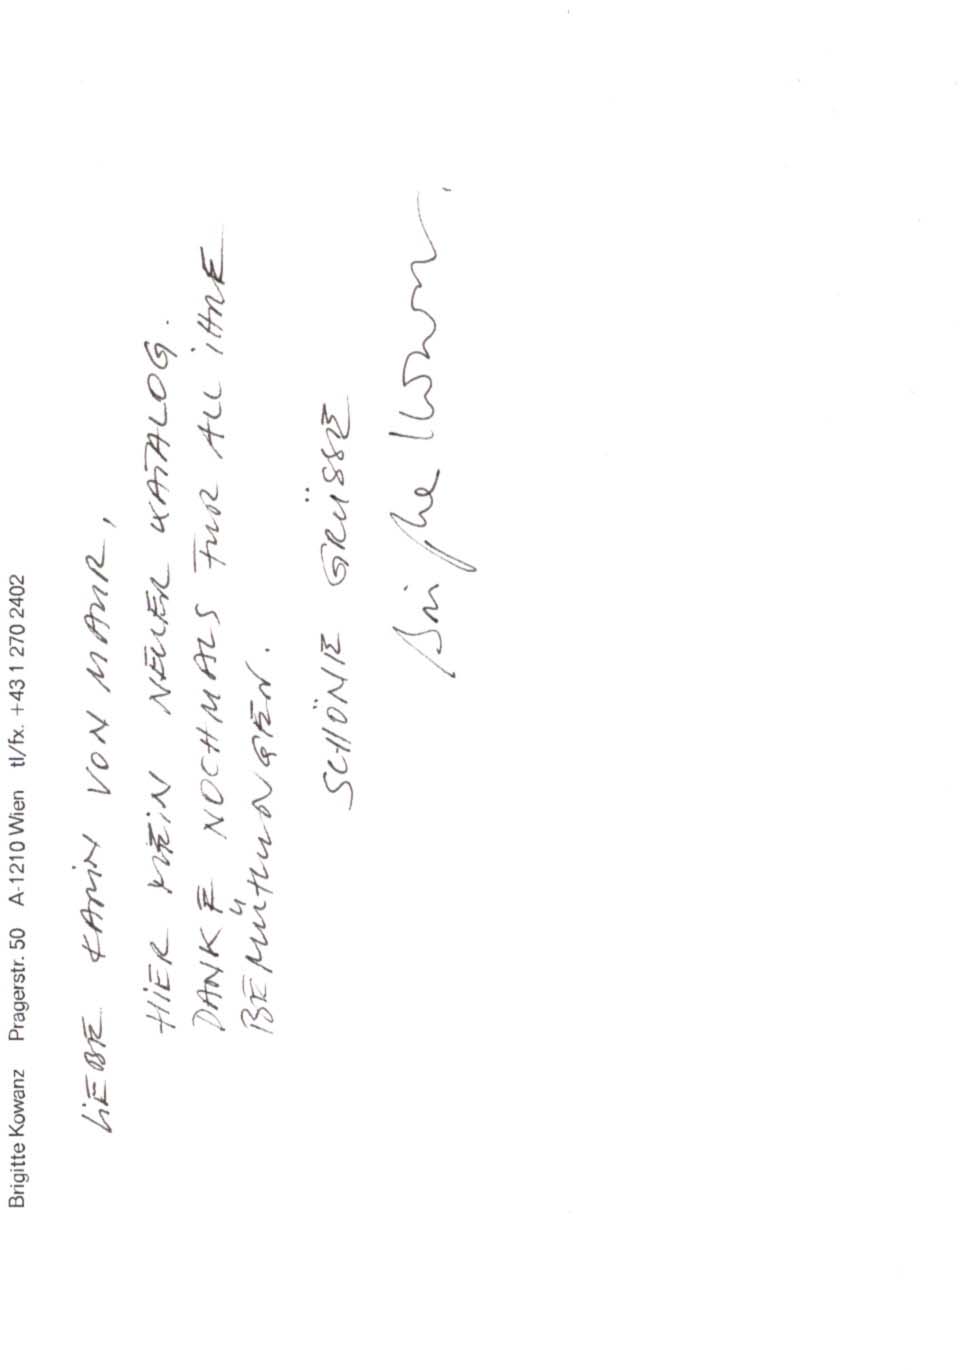 Brigitte Kowanz Pragerstr. 50 A-1210 Wien tl/fx. +43 1 270 2402
LiEBE KARiN VON MAUR,
HiER MEiN NEUER KATALOG.
DANKE NOCHMALS FÜR ALL iHRE
BEMÜHUNGEN.
SCHÖNE GRÜSSE
Brigitte Kowanz